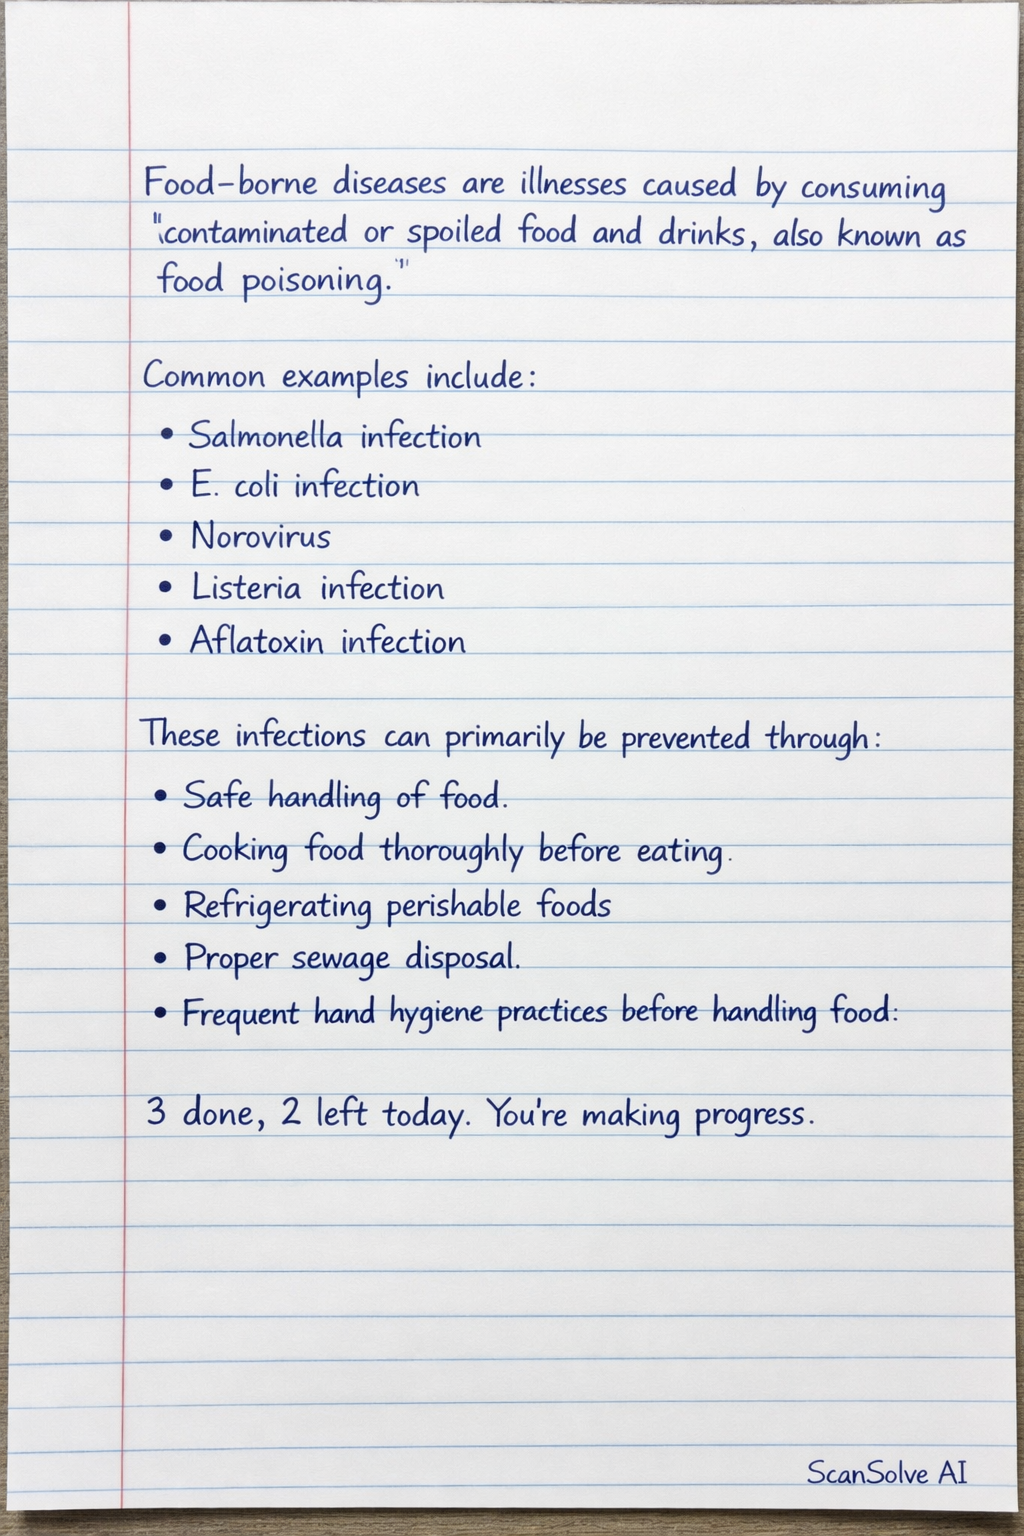 Food-borne diseases are illnesses caused by consuming
"contaminated or spoiled food and drinks, also known as
food poisoning."
Common examples include:
• Salmonella infection
• E. coli infection
• Norovirus
• Listeria infection
• Aflatoxin infection
These infections can primarily be prevented through:
• Safe handling of food.
• Cooking food thoroughly before eating.
• Refrigerating perishable foods
• Proper sewage disposal.
• Frequent hand hygiene practices before handling food:
3 done, 2 left today. You're making progress.
ScanSolve AI